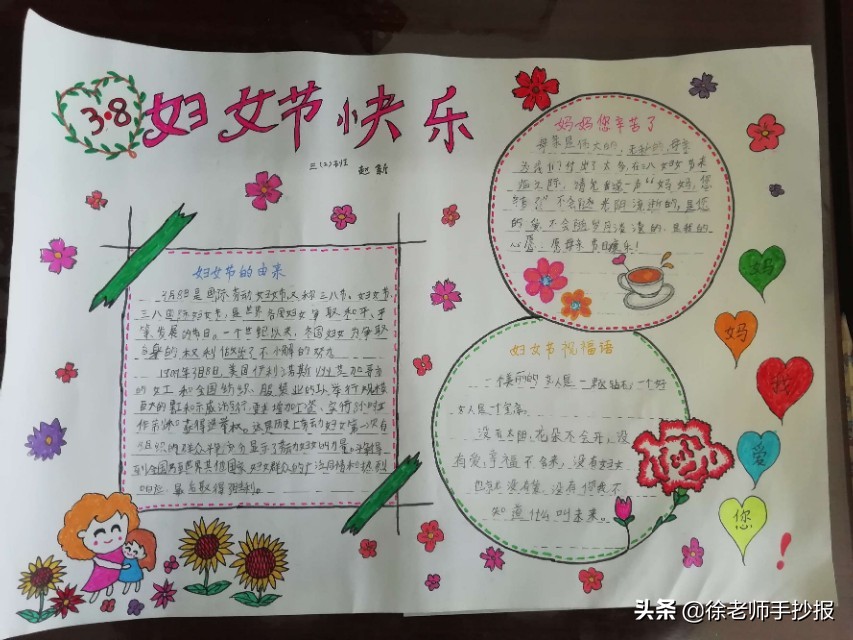 3·8
妇女节快乐
三(2)班 赵新
妇女节的由来
3月8日是国际劳动妇女节,又称三八节、妇女节、
三八国际妇女节,是世界各国妇女争取和平、平
等、发展的节日。一个世纪以来,各国妇女为争取
的权利做出了不懈的努力
1909年3月8日,美国伊利诺斯州芝加哥市
的女工和全国纺织、服装业的工人举行规模
巨大的罢工和示威游行,要求增加工资、实行8小时工
作制和获得选举权。这是历史上劳动妇女第一次有
组织的群众
到全国和世界其他国家妇女群众的广泛同情和热烈
响应,最后取得胜利。
妈妈您辛苦了
母亲是伟大的,无私的,母亲
为我们付出了太多,在三八妇女节来
临之际,请笔者道一声“妈妈,您
不会随太阳渐渐的,且您
的爱不会随岁月渐渐的,且我的
心愿:愿母亲节日快乐!
妇女节祝福语
一个美丽的女人是一颗钻石,一个好
女人是一个宝藏。
没有太阳,花朵不会开,没
有爱,幸福不会来,没有妇女
也就没有爱,没有你我不
知道什么叫未来。
妈
妈
我
爱
您
!
头条 @徐老师手抄报